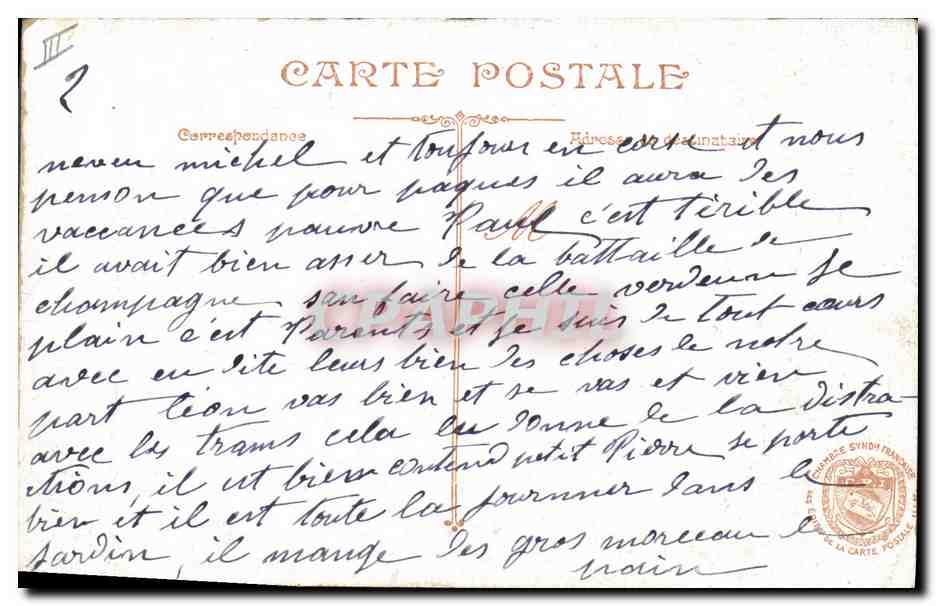 III
2
CARTE POSTALE
Correspondance
Adresse du destinataire
neveu michel et toujour en corse et nous
penson que pour paques il aura des
vaccances pauvre Paul c'est térible
il avait bien asser de la battaille de
champagne san faire celle verdeun je
plain c'est Parents et je suis de tout cœurs
avec eu dite leurs bien des choses de notre
part léon vas bien et se vas et vien
avec les trams cela lui donne de la distra-
ctions, il est bien contend petit Pierre se porte
bien et il est toute la journner dans le
jardin, il mange des gros morceau de
pain
CHAMBRE SYNDle FRANÇAISE
DES EDITrs DE LA CARTE POSTALE ILLée
CPAPHIL